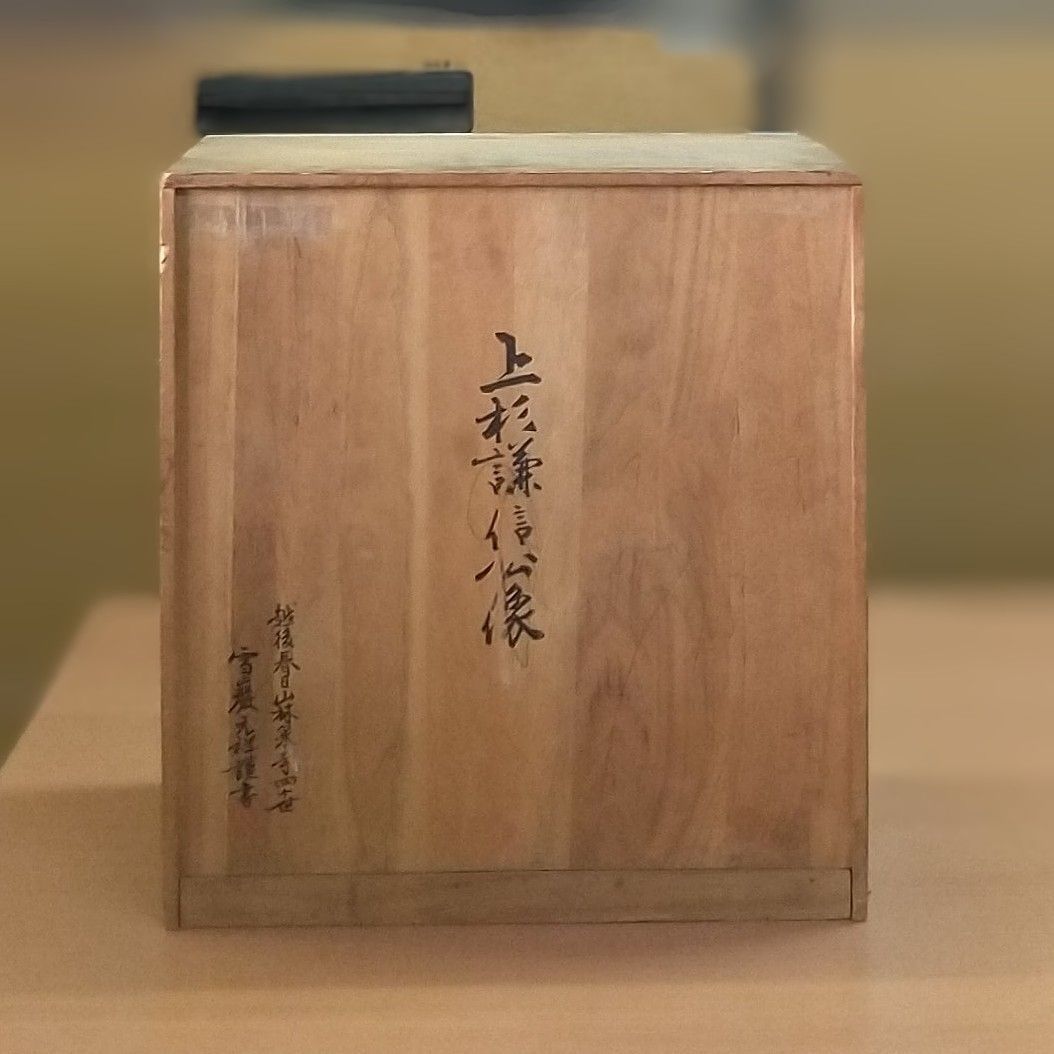 上杉謙信公像
越後春日山林泉寺四十世
雪巌元經謹書